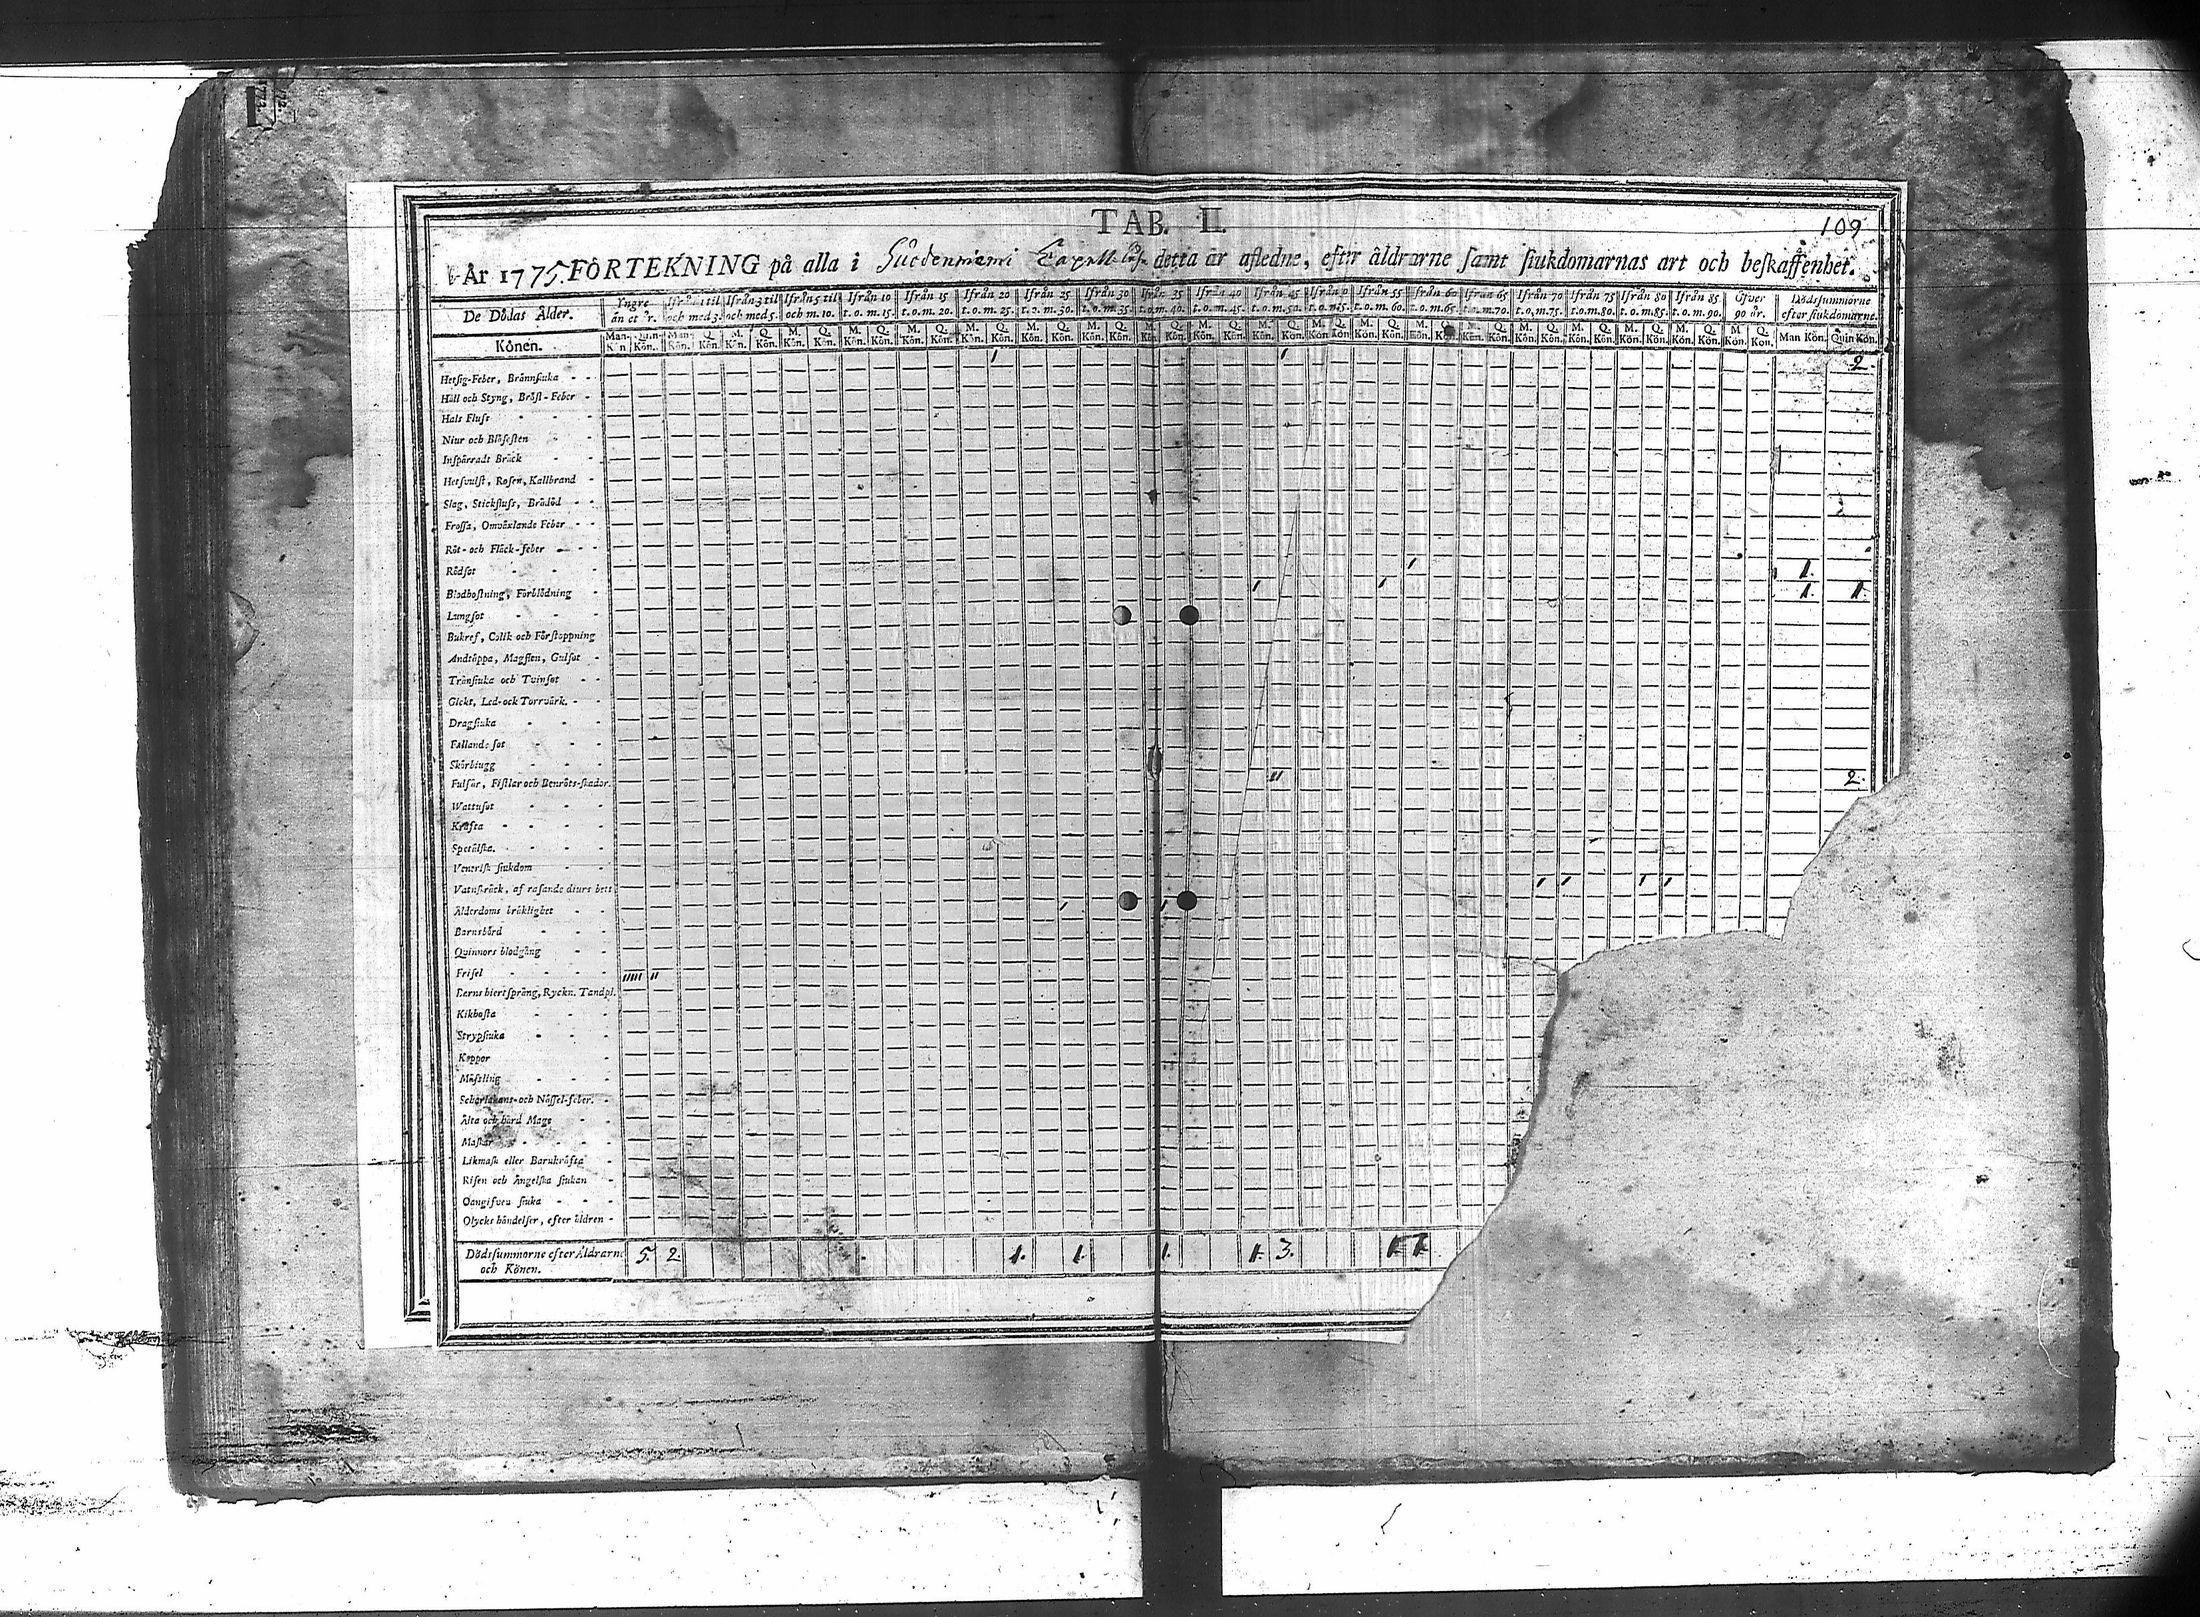 TAB. II.
109
År 1775. FÖRTEKNING på alla i Capell detta år afledne, efter åldrarne samt siukdomarnas art och beskaffenhet.
De Dödas Ålder. Yngre än et år. Ifrån 1 til och med 3. Ifrån 3 til och med 5. Ifrån 5 til och m. 10. Ifrån 10 t. o. m. 15. Ifrån 15 t. o. m. 20. Ifrån 20 t. o. m. 25. Ifrån 25 t. o. m. 30. Ifrån 30 t. o. m. 35. Ifrån 35 t. o. m. 40. Ifrån 40 t. o. m. 45. Ifrån 45 t. o. m. 50. Ifrån 55 t. o. m. 60. Ifrån 60 t. o. m. 65. Ifrån 65 t. o. m. 70. Ifrån 70 t. o. m. 75. Ifrån 75 t. o. m. 80. Ifrån 80 t. o. m. 85. Ifrån 85 t. o. m. 90. Öfver 90 år. Dödssummorne efter siukdomarne.
Könen. Man Kön. Quin Kön.
Hetsig-Feber, Brännsiuka 1 1 2.
Håll och Styng, Bröst-Feber
Hals Fluss
Niur och Blåsesten
Inspärradt Bråck
Hetsvulst, Rosen, Kallbrand
Slag, Stickfluss, Brådöd
Frossa, Omväxlande Feber
Röt- och Fläck-feber
Rödsot
Blodhostning, Förblödning 1 1.
Lungsot 1 1 1. 1.
Bukref, Colik och Förstoppning
Andtäppa, Magsten, Gulsot
Trånsiuka och Tvinsot
Gickt, Led- och Torrvärk.
Dragsiuka
Fallande sot
Skörbiugg
Fulsår, Fistlar och Benröts-skador.
Wattusot 11 2.
Kräfta
Spetälska.
Venerisk siukdom
Vatuskräck, af rasande diurs bett
Ålderdoms bräklighet 1 1 1 1
Barnsbörd 1 1
Quinnors blodgång
Frisel
Barns hiertsprång, Ryckn. Tandpl. 11111 11
Kikhosta
Strypsiuka
Koppor
Mässling
Scharlakans- och Nässel-feber.
Älta och hård Mage
Maskar
Likmask eller Barnkräfta
Risen och Ängelska siukan
Oangifven siuka
Olycks händelser, efter åldren
Dödssummorne efter Åldrarne och Könen. 5. 2. 1. 1. 1. 1. 3. 1. 1.